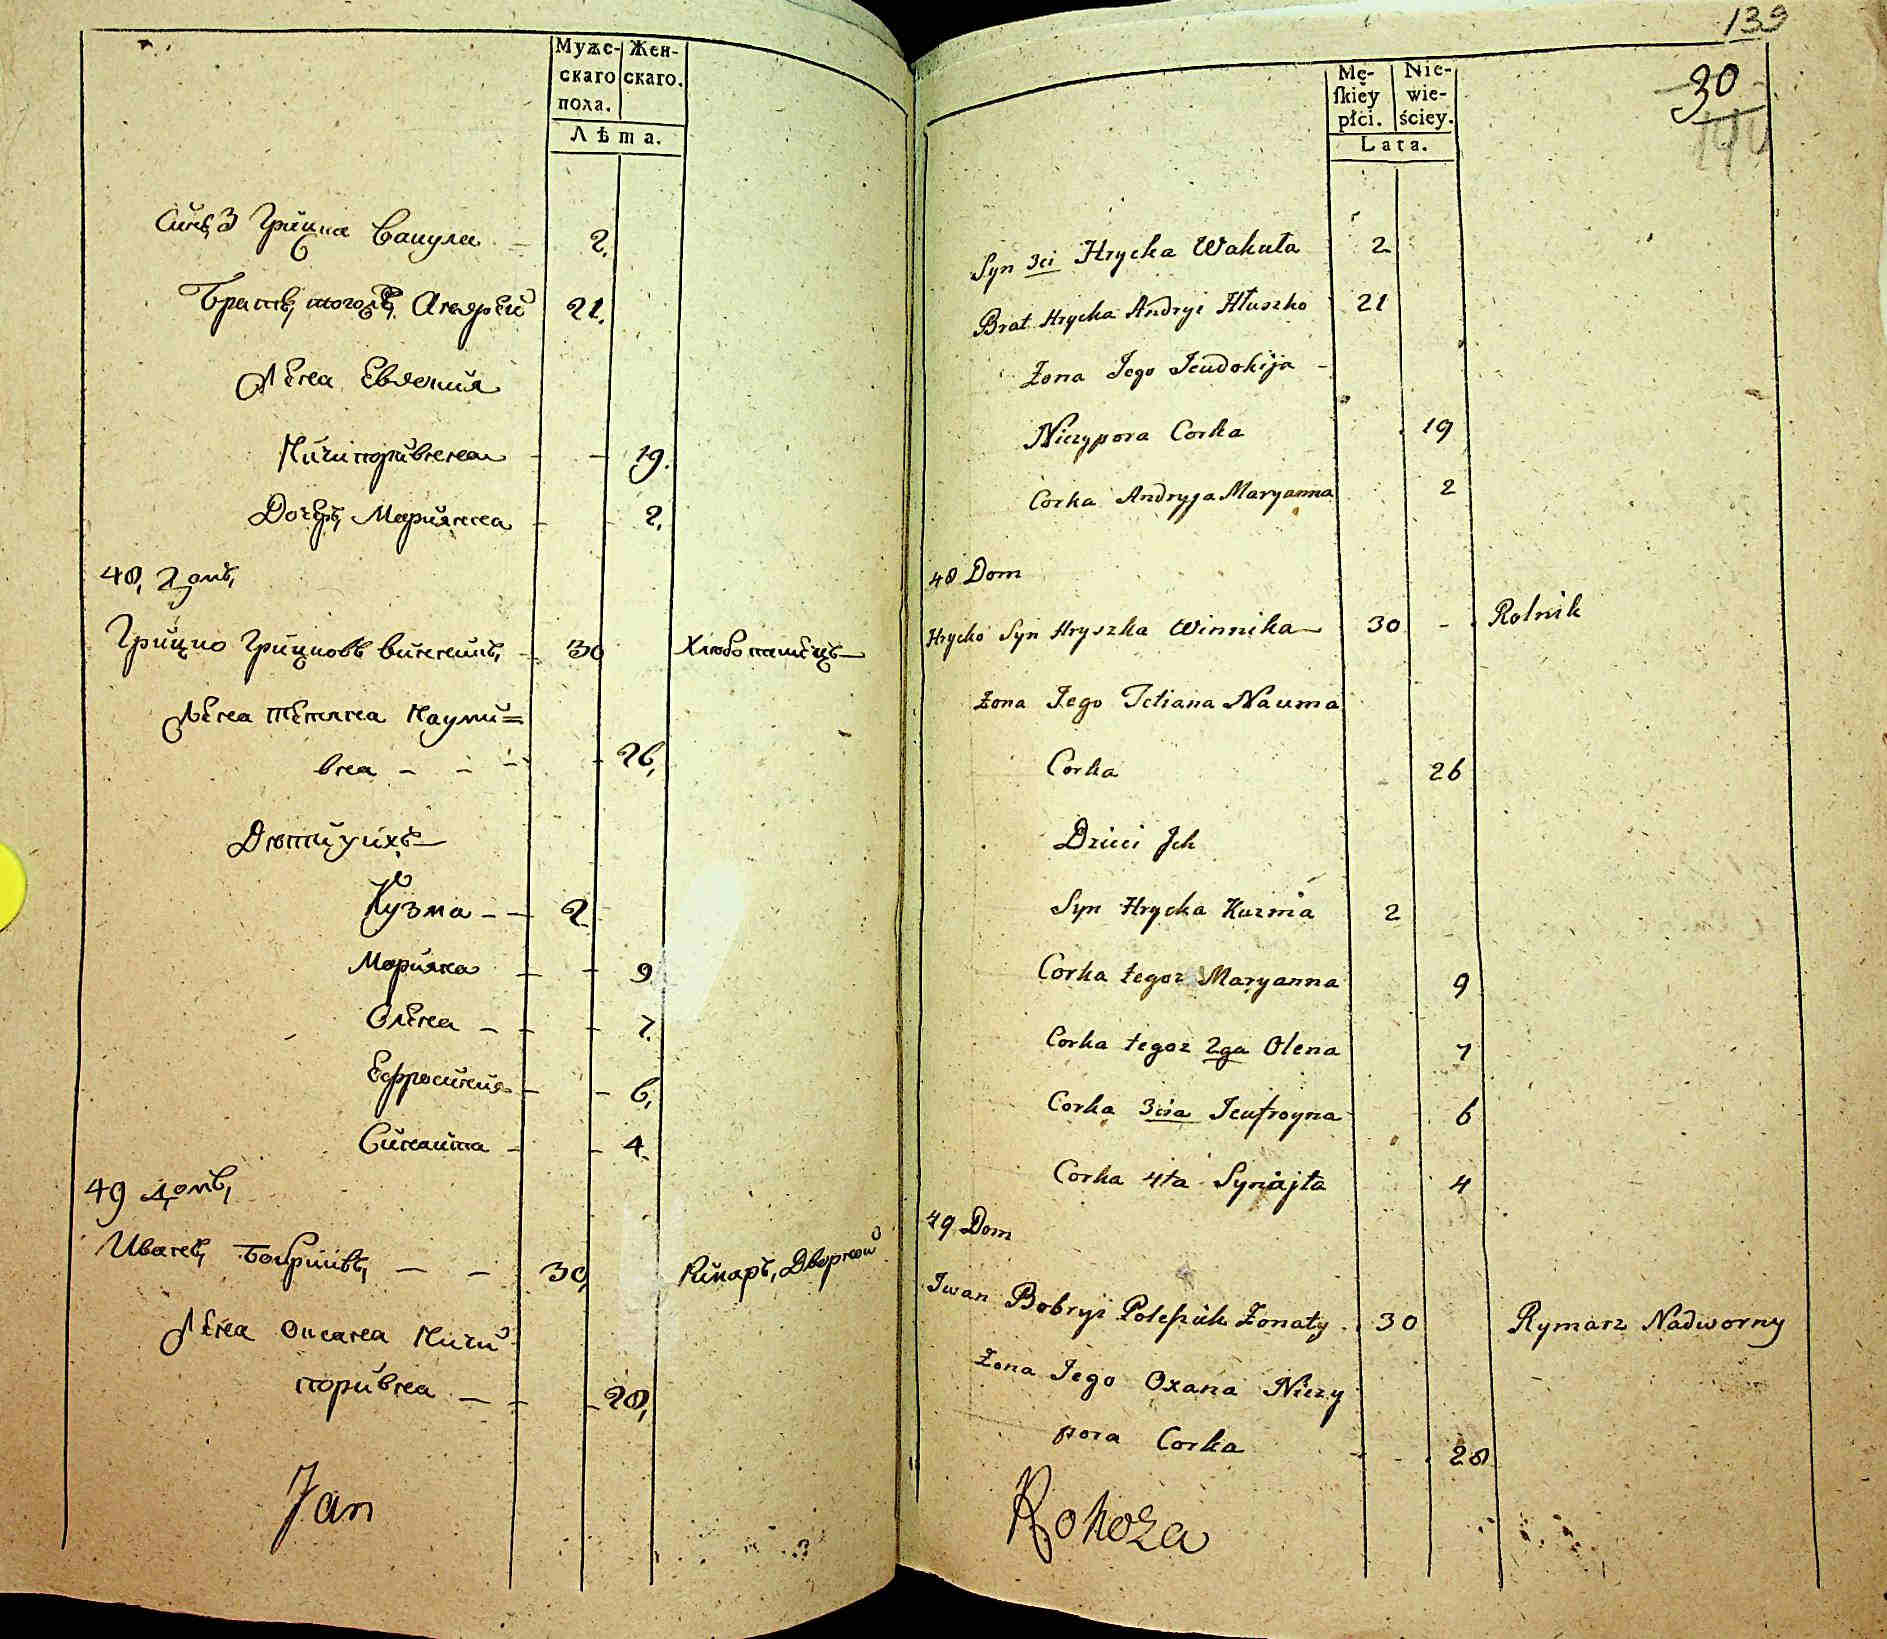 Муже- Жен-
скаго скаго.
пола.
Лѣта.
Синъ 3 Грицка Вакула 2.
Братъ, тогожъ, Андрей 21.
Жена Евдокия
Ничипоривнна - - 19.
Дочеръ, Марианна - - 2.
48, Домъ,
Грицко Грицковъ Винникъ, - 30 Хлѣбопашецъ
Жена Тетяна Науми=
вна - - - - 26,
Дѣти ихъ
Кузма - - 2
Марияна - - 9
Олена - - - 7.
Ефросиния - - 6,
Синаита - - 4.
49 домъ,
Иванъ, Бобрийвъ, - - 30, Римаръ, Дворной
Жена Оксана Ничи
поривна - - - 28,
Jan
139
30
Mę- Nie-
ſkiey wie-
płci. ściey.
Lata.
Syn 3ci Hrycka Wakuła 2
Brat Hrycka Andryi Hłuszko 21
Żona Jego Jeudokija -
Niczypora Corka 19
Corka Andryja Maryanna 2
48 Dom
Hrycko Syn Hryszka Winnika 30 - Rolnik
Żona Jego Tetiana Nauma
Corka 26
Dzieci Jch
Syn Hrycka Kuzma 2
Corka tegoz Maryanna 9
Corka tegoz 2ga Olena 7
Corka 3cia Jeufroyna 6
Corka 4ta Synajta 4
49 Dom
Jwan Bobryi Żonaty 30 Rymarz Nadworny
Żona Jego Oxana Niczy
pora Corka - - 28
Rokoza